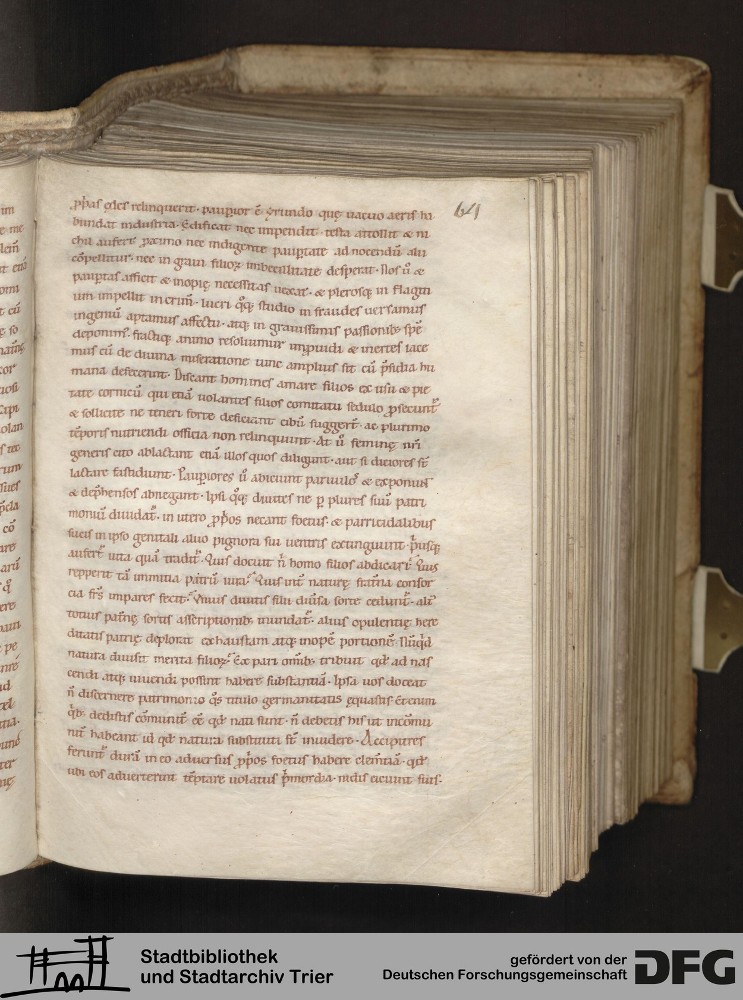 64
ꝓp̃as ędes relinquerit · pauꝑior ẽ · Yrundo quę uacuo aeris ha
bundat industria · Ędificat nec impendit · tecta attollit & ni
chil aufert ꝓximo nec indigentię pauꝑtate ad nocendũ alii
cõpellitur · nec in graui filioꝝ imbecillitate desperat · Nos ũ &
pauꝑtas afficit & inopię necessitas uexat · & plerosq; in flagiti
um impellit in crim̃ · lucri qͦq; studio in fraudes uersamus
ingeniũ aptamus affectũ · atq; in grauissimis passionib; spẽ
deponim; fractiq; animo resoluimur imꝓuidi & inertes iace
mus cũ de diuina miseratione tunc amplius sit cũ p̃sidia hu
mana defecerint · Discant homines amare filios ex usu & pie
tate cornicũ qui etiã uolantes filios comitatu sedulo ꝓsecunt᷑
& sollicite ne teneri forte deficiant cibũ suggerr̃t · ac plurimo
tẽporis nutriendi officia non relinquunt · At ũ feminę nr̃i
generis cito ablactant etiã illos quos diligunt · aut si ditiores st̃
lactare fastidiunt · Pauꝑiores ũ abiciunt paruulos & exponunt
& dep̃hensos abnegant · Ipsi qͦq; diuites ne ꝑ plures suũ patri
moniũ diuidat᷑ · in utero ꝓp̃os necant foetus & parricidalibus
sucis in ipso genitali aluo pignora sui uentris extinguunt · p̃usq;
aufert᷑ uita quã tradit᷑ · Quis docuit ñ homo filios abdicari? Quis
repperit tã immitia patrũ iura? Quis int̃ naturę frat̃na consor
cia frs̃ impares fecit? Unius diuitis filii diũsa sorte cedunt᷑ · ali᷑
totius pat̃nę sortis asscriptionib; inundat᷑ · alius opulentię here
ditatis patrię deplorat exhaustam atq; inopẽ portionẽ · Nũqͥd
natura diuisit merita filioꝝ? Ex pari omĩb; tribuit qđ ad nas
cendi atq; uiuendi possint habere substantiã · Ipsa uos doceat
ñ discernere patrimonio qͦs titulo germanitatis ęquastis Etenim
qͥb; dedistis cõmunit᷑ eẽ qđ nati sunt · ñ debetis his ut incõmu
nit᷑ habeant id qđ natura substituti st̃ inuidere · Accipitres
ferunt᷑ durã in eo aduersus ꝓp̃os foetus habere clem̃tiã · qđ
ubi eos aduerterint tẽptare uolatus p̃mordia · nidis eiciunt suis ·
Stadtbibliothek
und Stadtarchiv Trier
gefördert von der
Deutschen Forschungsgemeinschaft
DFG